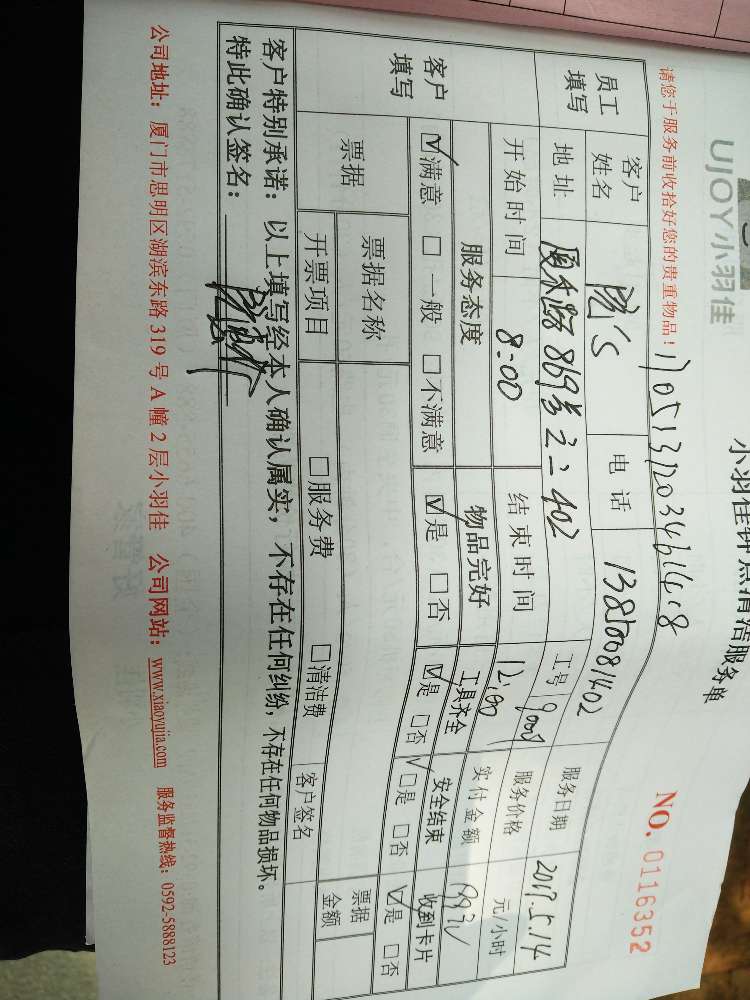 UJOY小羽佳
小羽佳钟点清洁服务单
NO. 0116352
请您于服务前收拾好您的贵重物品！
员工填写 客户姓名 's 电话 13850081402 服务日期 2017.5.14
地址 厦禾路869号2二402 工号 9000 服务价格 元/小时
开始时间 8:00 结束时间 12:00 实付金额
客户填写 服务态度 物品完好 工具齐全 安全结束 收到卡片
☑满意 □一般 □不满意 ☑是 □否 ☑是 □否 ☑是 □否 ☑是 □否
票据 票据名称 票据金额
开票项目 □服务费 □清洁费 客户签名
客户特别承诺：以上填写经本人确认属实，不存在任何纠纷，不存在任何物品损坏。
特此确认签名：
公司地址：厦门市思明区湖滨东路 319 号 A 幢 2 层小羽佳 公司网站：www.xiaoyujia.com 服务监督热线：0592-5888123